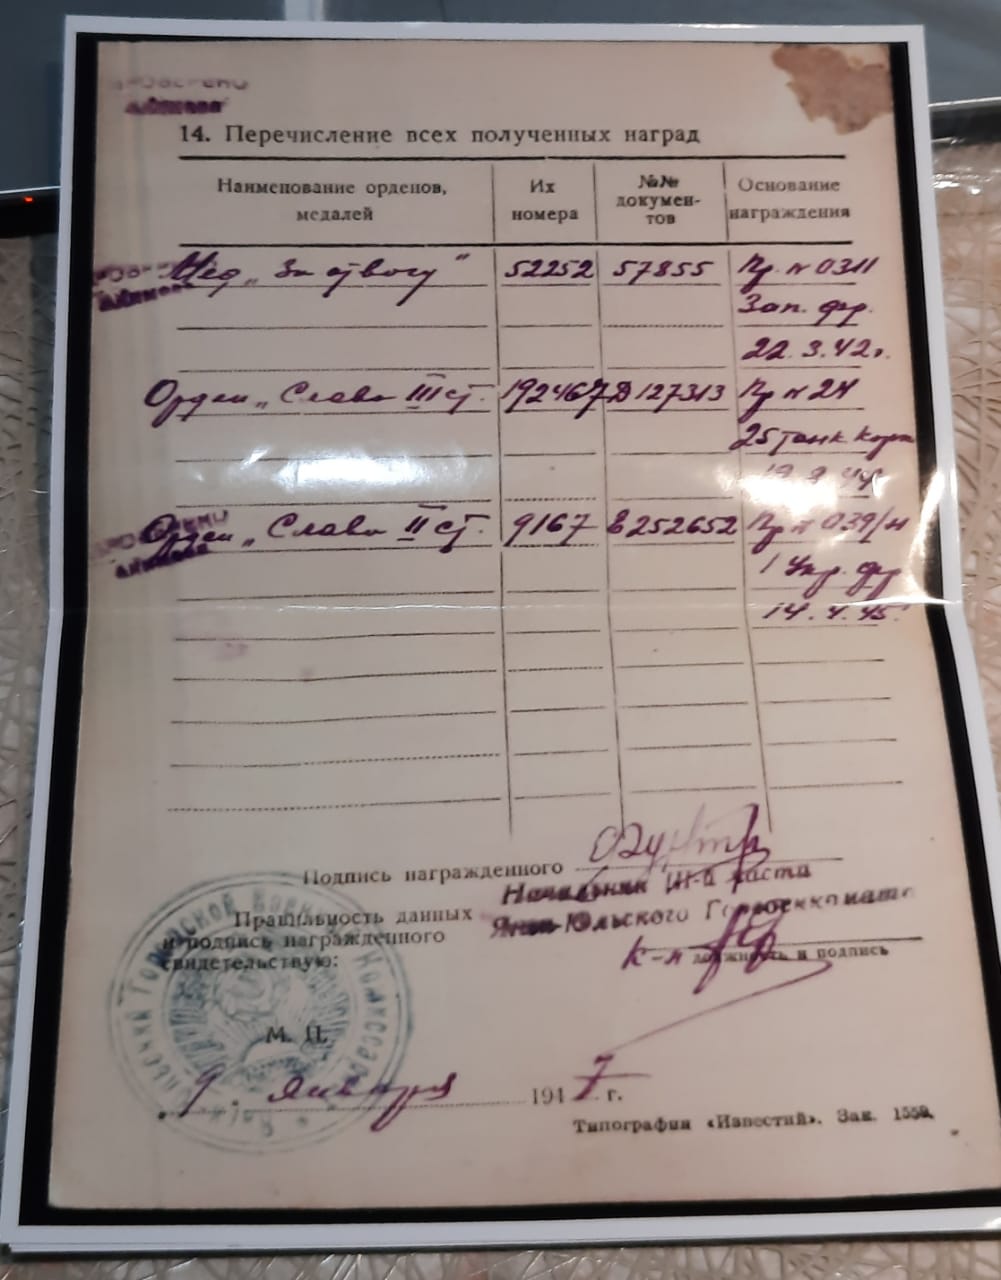 ПРОВЕРЕНО
14. Перечисление всех полученных наград
Наименование орденов, медалей
Их номера
№№ докумен-тов
Основание награждения
Мед „За отвагу" 52252 57855 Пр. № 0311
Зап. фр.
22.3.42г.
Орден „Слава III ст. 192467 Д 127313 Пр № 2Н
25 танк. корп
Орден „Слава II ст. 9167 Е 252652 Пр № 039/н
1 Укр. фр
14.4.45
Подпись награжденного
Начальник III-й части
Правильность данных
Янги-Юльского Горвоенкомата
и подпись награжденного
свидетельствую:
к-н
должность и подпись
М. П.
9 января 1947 г.
Типография «Известий». Зак. 1559.